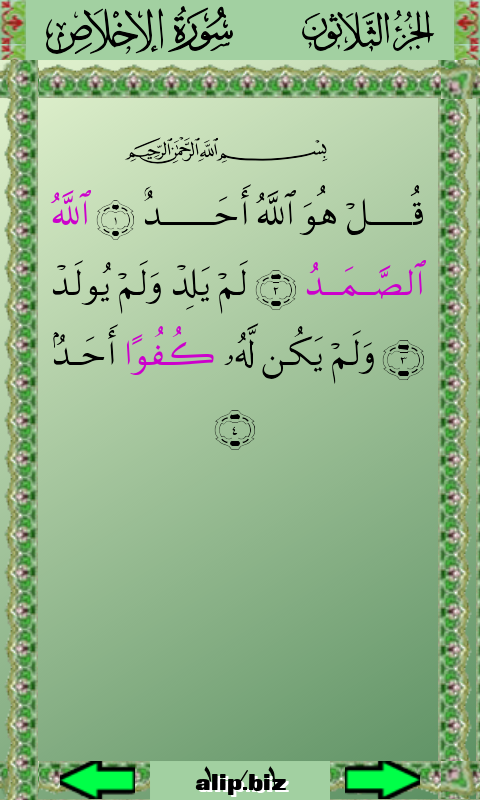 الجزء الثلاثون سورة الإخلاص
بسم الله الرحمن الرحيم
قُلْ هُوَ ٱللَّهُ أَحَدٌ ١ ٱللَّهُ
ٱلصَّمَدُ ٢ لَمْ يَلِدْ وَلَمْ يُولَدْ
٣ وَلَمْ يَكُن لَّهُۥ كُفُوًا أَحَدٌۢ
٤
alip.biz